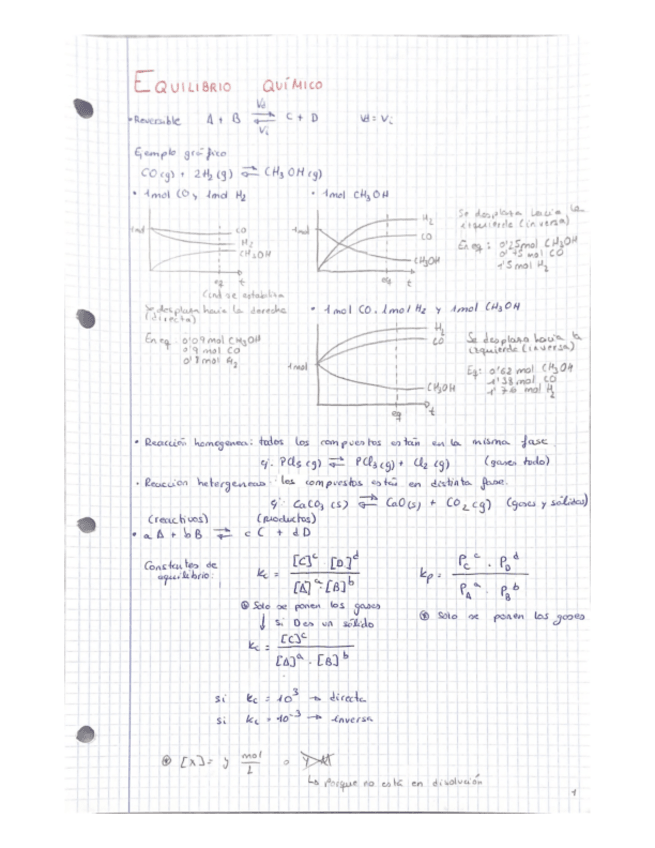 EQUILIBRIO QUÍMICO
• Reversible A + B ⇄ C + D Vd = Vi
Vd
Vi
Ejemplo gráfico
CO(g) + 2H₂(g) ⇄ CH₃OH(g)
• 1mol CO y 1mol H₂
1mol
CO
H₂
CH₃OH
eq
t
se estabiliza
Se desplaza hacia la derecha
(directa)
En eq: 0'09 mol CH₃OH
0'9 mol CO
mol H₂
• 1mol CH₃OH
1mol
H₂
CO
CH₃OH
eq
t
Se desplaza hacia la
izquierda (inversa)
En eq: 0'25mol CH₃OH
0'75 mol CO
1'5 mol H₂
• 1mol CO, 1mol H₂ y 1mol CH₃OH
1mol
H₂
CO
CH₃OH
eq
t
Se desplaza hacia la
izquierda (inversa)
Eq: 0'62 mol CH₃OH
1'38 mol CO
1'76 mol H₂
• Reacción homogenea: todos los compuestos están en la misma fase.
ej: PCl₅(g) ⇄ PCl₃(g) + Cl₂(g) (gases todo)
• Reacción hetergeneas: los compuestos están en distinta fase.
ej: CaCO₃(s) ⇄ CaO(s) + CO₂(g) (gases y sólidos)
(reactivos) (productos)
• aA + bB ⇄ cC + dD
Constantes de
equilibrio:
kc = [C]^c · [D]^d / [A]^a · [B]^b
kp = P_C^c · P_D^d / P_A^a · P_B^b
Solo se ponen los gases
Solo se ponen los gases
↓ si D es un sólido
kc = [C]^c / [A]^a · [B]^b
si kc = 10³ → directa
si kc = 10⁻³ → inversa
[X] = y mol/L o y M
↳ porque no está en disolución
1